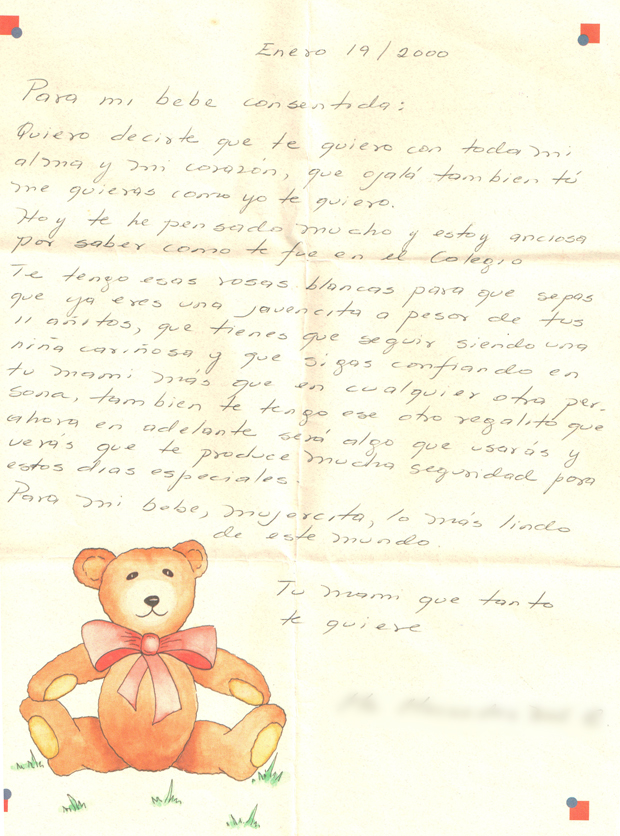 Enero 19/2000
Para mi bebe consentida:
Quiero decirte que te quiero con toda mi
alma y mi corazón, que ojalá tambien tú
me quieras como yo te quiero.
Hoy te he pensado mucho y estoy anciosa
por saber como te fue en el Colegio
Te tengo esas rosas blancas para que sepas
que ya eres una jovencita a pesar de tus
11 añitos, que tienes que seguir siendo una
niña cariñosa y que sigas confiando en
tu mami más que en cualquier otra per-
sona, tambien te tengo ese otro regalito que
ahora en adelante será algo que usarás y
verás que te produce mucha seguridad para
estos dias especiales.
Para mi bebe, mujercita, lo más lindo
de este mundo.
Tu mami que tanto
te quiere